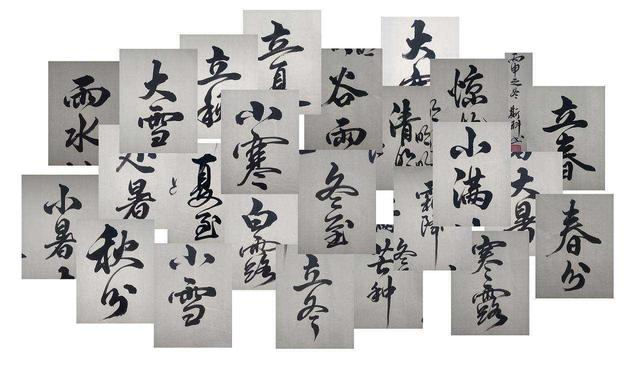 立夏
大
立秋
谷雨
惊
丙申之冬
雨水
大雪
小寒
清明
立春
小满
处暑
夏至
冬至
大暑
小暑
白露
霜降
春分
秋分
小雪
立冬
芒种
寒露